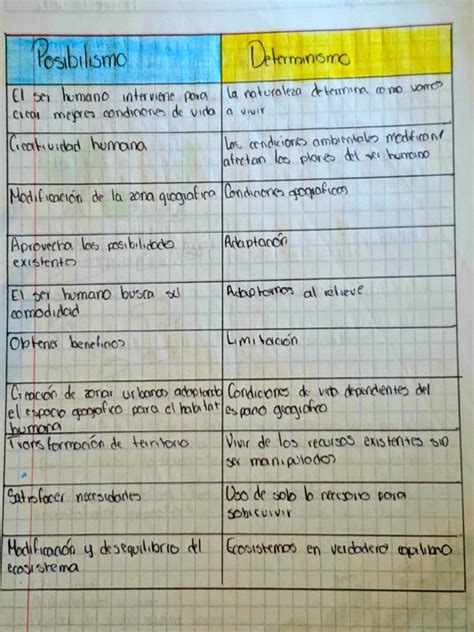 Posibilismo
Determinismo
El ser humano interviene para
crear mejores condiciones de vida
La naturaleza determina como vamos
a vivir
Creatividad humana
Las condiciones ambientales modifican/
afectan los planes del ser humano
Modificación de la zona geografica
Condiciones geograficas
Aprovecha las posibilidades
existentes
Adaptación
El ser humano busca su
comodidad
Adaptarnos al relieve
Obtener beneficios
Limitación
Creación de zonas urbanas adaptando
el espacio geografico para el habitat
humana
Condiciones de vida dependientes del
espacio geográfico
Transformación de territorio
Vivir de los recursos existentes sin
ser manipulados
Satisfacer necesidades
Uso de solo lo necesario para
sobrevivir
Modificación y desequilibrio del
ecosistema
Ecosistemas en verdadero equilibrio